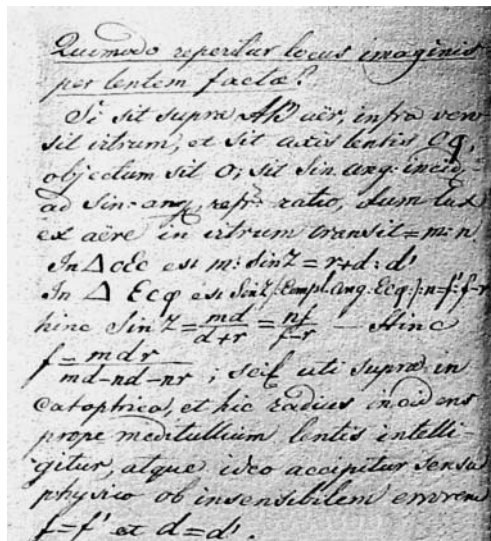 Quomodo reperitur locus imaginis
per lentem factæ?
Si sit supra AB aër, infra vero
sit vitrum, et sit axis lentis Oφ,
objectum sit O; sit Sin ang: incid:
ad Sin: ang. refr: ratio, dum lux
ex aëre in vitrum transit = m:n
In Δ oEc est m: Sin Z = r+d: d'
In Δ Ecφ est Sin Z (:Compl. ang: Ecφ:): n = f': f-r
hinc Sin Z = md/d+r = nf/f-r — Hinc
f = mdr/md-nd-nr ; scil uti supra in
Catoptrica, et hic radius incidens
prope meditullium lentis intelli-
gitur, atque ideo accipitur sensu
physico ob insensibilem errorem
f=f' et d=d'.